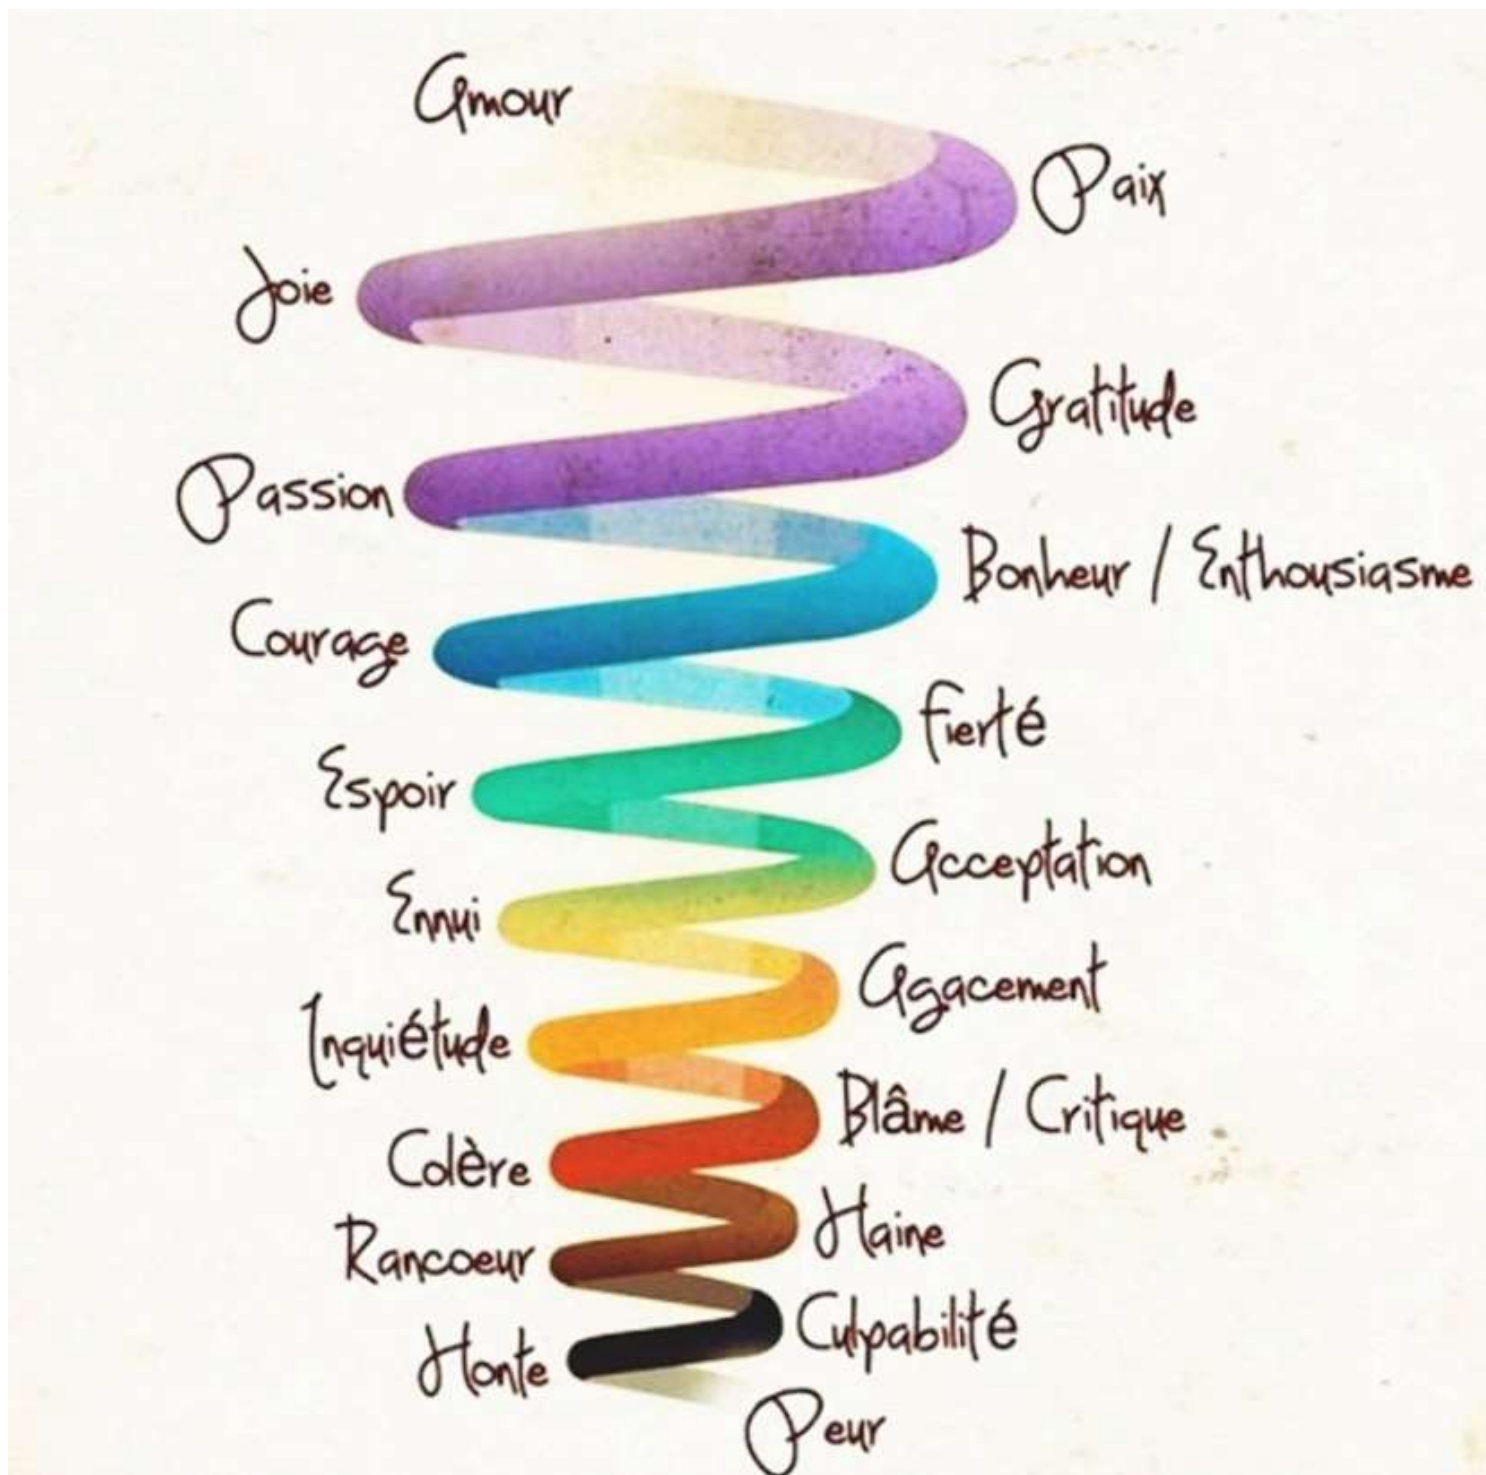 Amour
Paix
Joie
Gratitude
Passion
Bonheur / Enthousiasme
Courage
Fierté
Espoir
Acceptation
Ennui
Agacement
Inquiétude
Blâme / Critique
Colère
Haine
Rancoeur
Culpabilité
Honte
Peur